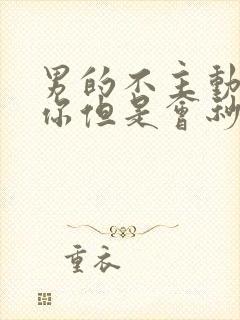 男的不主動
你但是會秒
重衣